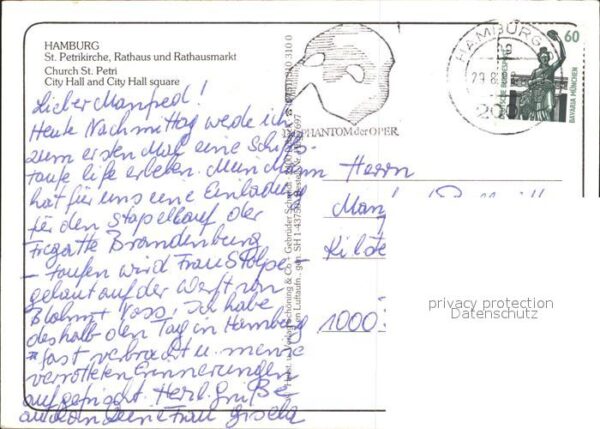 HAMBURG
St. Petrikirche, Rathaus und Rathausmarkt
Church St. Petri
City Hall and City Hall square
Lieber Manfred!
Heute Nachmittag werde ich
zum ersten Mal eine Schiffs-
taufe life erleben. Mein Mann
hat für uns eine Einladung
für den Stapellauf der
Fregatte Brandenburg
- taufen wird Frau Stolpe -
gebaut auf der Werft von
Blohm + Voss. Ich habe
deshalb den Tag in Hamburg
fast verbracht u. meine
verrotteten Erinnerungen
aufgefrischt. Herzl. Grüße
auch an Deine Frau Gisela
PHANTOM der OPER
HAMBURG
60
DEUTSCHE BUNDESPOST
BAVARIA MÜNCHEN
Schöning & Co + Gebrüder Schmidt
Herrn
Man
Kilde
1000
privacy protection
Datenschutz